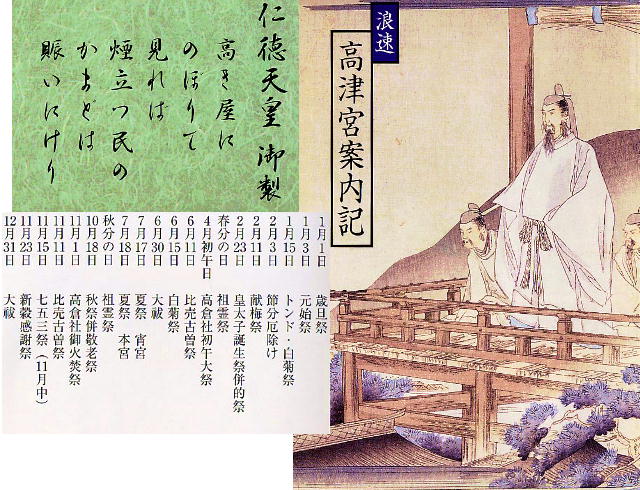 浪速
高津宮案内記
仁徳天皇 御製
高き屋に
のぼりて
見れば
煙立つ民の
かまどは
賑いにけり
1月1日 歳旦祭
1月3日 元始祭
1月15日 トンド・白菊祭
2月3日 節分厄除け
2月11日 献梅祭
2月23日 皇太子誕生祭併的祭
春分の日 祖霊祭
4月初午日 高倉社初午大祭
6月11日 比売古曽祭
6月15日 白菊祭
6月30日 大祓
7月17日 夏祭 宵宮
7月18日 夏祭 本宮
秋分の日 祖霊祭
10月18日 秋祭併敬老祭
11月1日 高倉社御火焚祭
11月11日 比売古曽祭
11月15日 七五三祭（11月中）
11月23日 新穀感謝祭
12月31日 大祓